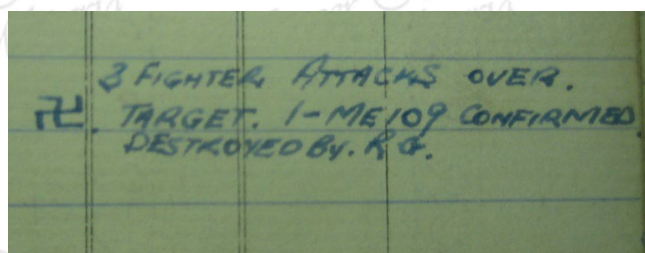 3 FIGHTER ATTACKS OVER.
卍. TARGET. 1-ME109 CONFIRMED
DESTROYED BY. R.G.